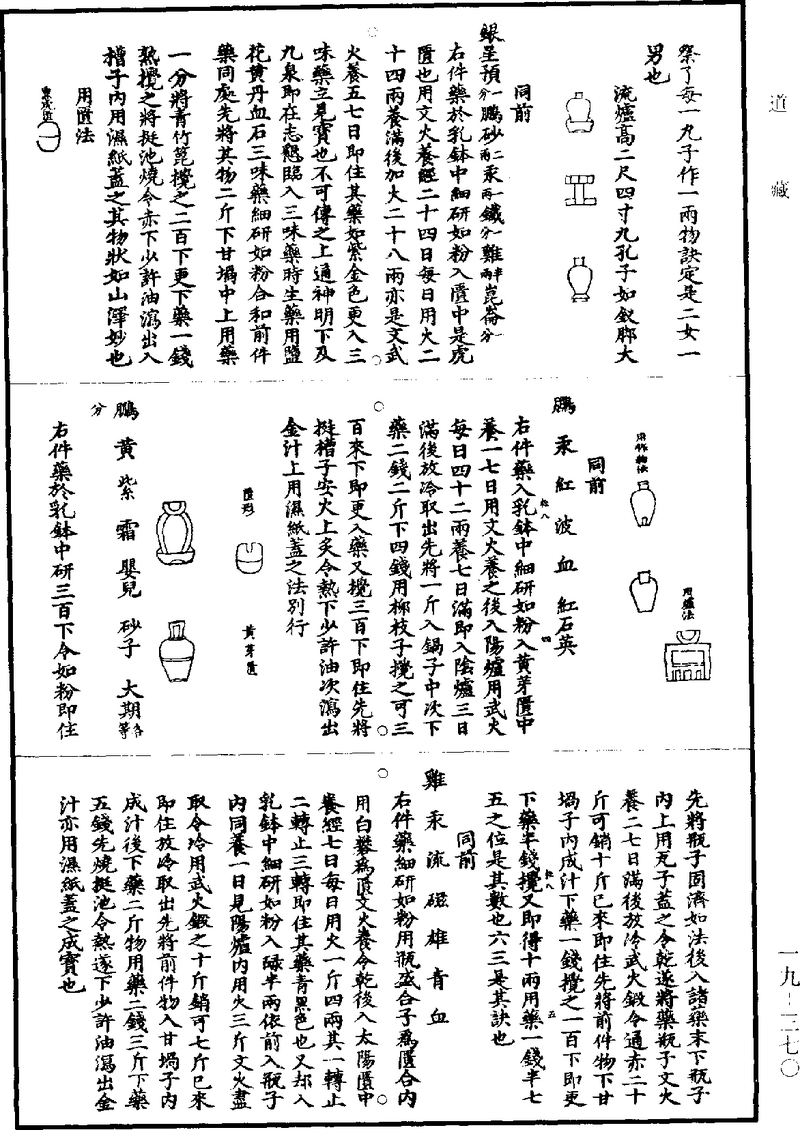 道藏
祭了每一丸子作一兩物訣定是二女一
男也
流爐高二尺四寸九孔子如釵腳大
同前
銀呈預分鵬砂二兩汞一兩鐵分雞半兩崑崙分
右件藥於乳鉢中細研如粉入匱中是虎
匱也用文火養經二十四日每日用火二
十四兩養滿後加大二十八兩亦是文武
火養五七日即住其藥如紫金色更入三
味藥立見寶也不可傳之上通神明下及
九泉即在志懇臨入三味藥時生藥用鹽
花黃丹血石三味藥細研如粉合和前件
藥同處先將其物二斤下甘堝中上用藥
一分將青竹篦攪之二百下更下藥一錢
熟攪之將挺池燒令赤下少許油瀉出入
槽子內用濕紙蓋之其物狀如山澤妙也
用匱法
用爐法
同前
鵬汞紅波血紅石英
右件藥入乳鉢中細研如粉入黃芽匱中
養一七日用文火養之後入陽爐用武火
每日四十二兩養七日滿即入陰爐三日
滿後放冷取出先將一斤入鍋子中次下
藥二錢二斤下四錢用柳枝子攪之可三
百來下即更入藥又攪三百下即住先將
挺槽子安火上炙令熱下少許油次瀉出
金汁上用濕紙蓋之法別行
匱形
黃芽匱
鵬黃紫霜嬰兒砂子大期各等
分
右件藥於乳鉢中研三百下令如粉即住
先將瓶子固濟如法後入諸藥末下瓶子
內上用瓦子蓋之令乾遂將藥瓶子文火
養二七日滿後放冷武火鍛令通赤二十
斤可銷十斤已來即住先將前件物下甘
堝子內成汁下藥一錢攪之一百下即更
下藥半錢攪又即得十兩用藥一錢半七
五之位是其數也六三是其訣也
同前
雞汞流磁雄青血
右件藥細研如粉用瓶盛合子為匱合內
用白礬為匱文火養令乾後入太陽匱中
養經七日每日用火一斤四兩其一轉止
二轉止三轉即住其藥青黑色也又却入
乳鉢中細研如粉入硇半兩依前入瓶子
內同養一日見陽爐內用火三斤文火盡
取令冷用武火鍛之十斤銷可七斤已來
即住放冷取出先將前件物入甘堝子內
成汁後下藥二斤物用藥二錢三斤下藥
五錢先燒挺池令熱遂下少許油瀉出金
汁亦用濕紙蓋之成寶也
一九-三七〇